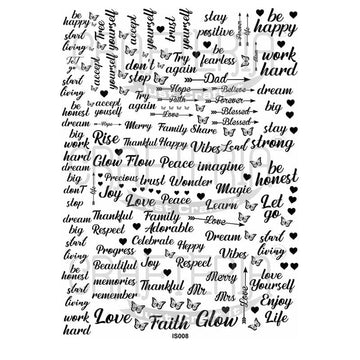 be happy
start living
Let go
start living
accept yourself
Tree yourself
trust yourself
stay positive
be happy
love yourself
accept yourself
don't stop
Try again
be fearless
work hard
Dad
Try again
Hope
Believe
Faith
Forever
Love
Blessed
Blessed
dream big
dream big
be yourself
accept yourself
honest
dream
Hope
Merry
Family
Share
stay strong
big work hard
Rise
Thankful
Happy
Vibes
Loud
Glow
Flow
Peace
imagine
be honest
Precious
trust
Wonder
Magic
dream big
don't stop
Joy
Love
Peace
Learn
Let go
dream big
Thankful
Family
Love
Respect
Adorable
Dream
start living
Celebrate
Progress
Happy
Vibes
be honest
Beautiful
Joy
Respect
love yourself
memories
remember
Thankful
Mr
Mrs
Love
Enjoy Life
start living
work hard
Love
Faith
Glow
IS008